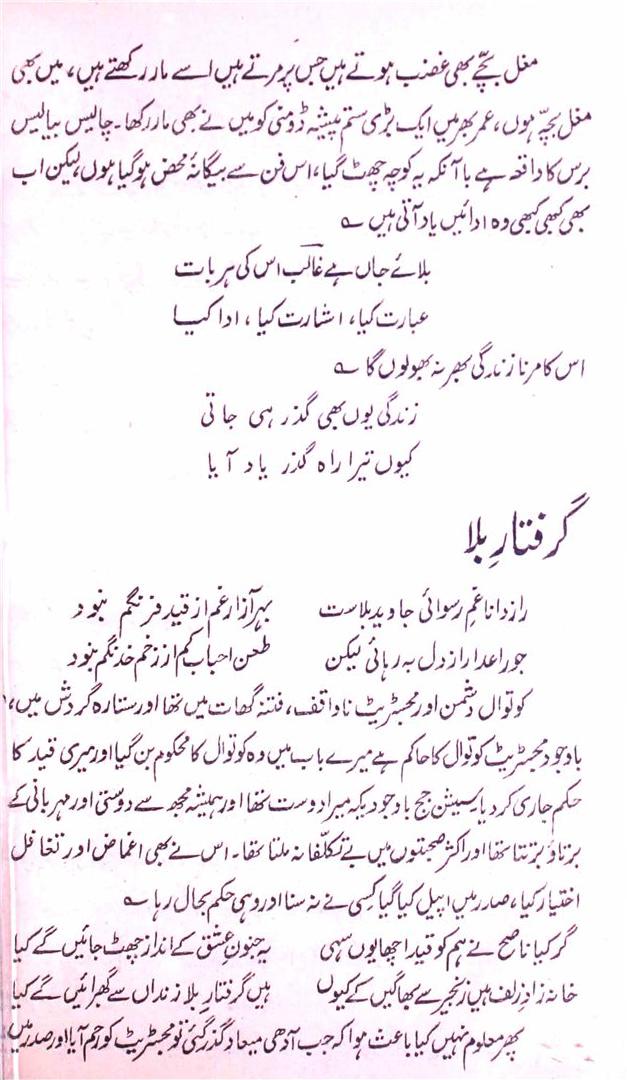 مغل بچّے بھی غضب ہوتے ہیں جس پر مرتے ہیں اسے مار رکھتے ہیں، میں بھی
مغل بچّہ ہوں، عمر بھر میں ایک بڑی ستم پیشہ ڈومنی کو میں نے بھی مار رکھا۔ چالیس بیالیس
برس کا واقعہ ہے با آنکہ یہ کوچہ چھٹ گیا، اس فن سے بیگانۂ محض ہو گیا ہوں لیکن اب
بھی کبھی کبھی وہ ادائیں یاد آتی ہیں ؎
بلائے جاں ہے غالب اس کی ہر بات
عبارت کیا، اشارت کیا، ادا کیا
اس کا مرنا زندگی بھر نہ بھولوں گا ؎
زندگی یوں بھی گذر ہی جاتی
کیوں تیرا راہ گذر یاد آیا
گرفتارِ بلا
راز دانا غمِ رسوائی جاوید بلاست بہر آزار غم از قید فرنگم نبود
جور اعدا رود از دل بہ رہائی لیکن طعن احباب کم از زخم خدنگم نبود
کوتوال دشمن اور مجسٹریٹ ناواقف، فتنہ گھات میں تھا اور ستارہ گردش میں،
باوجود مجسٹریٹ کوتوال کا حاکم ہے میرے باب میں وہ کوتوال کا محکوم بن گیا اور میری قید کا
حکم جاری کر دیا۔ سیشن جج باوجودیکہ میرا دوست تھا اور ہمیشہ مجھ سے دوستی اور مہربانی کے
برتاؤ برتتا تھا اور اکثر صحبتوں میں بے تکلّفانہ ملتا تھا۔ اس نے بھی اغماض اور تغافل
اختیار کیا، صدر میں اپیل کیا گیا کسی نے نہ سنا اور وہی حکم بحال رہا ؎
گر کیا ناصح نے ہم کو قید اچھا یوں سہی یہ جنونِ عشق کے انداز چھٹ جائیں گے کیا
خانہ زادِ زلف ہیں زنجیر سے بھاگیں گے کیوں ہیں گرفتارِ بلا زنداں سے گھبرائیں گے کیا
پھر معلوم نہیں کیا باعث ہوا کہ جب آدھی میعاد گذر گئی تو مجسٹریٹ کو رحم آیا اور صدر میں